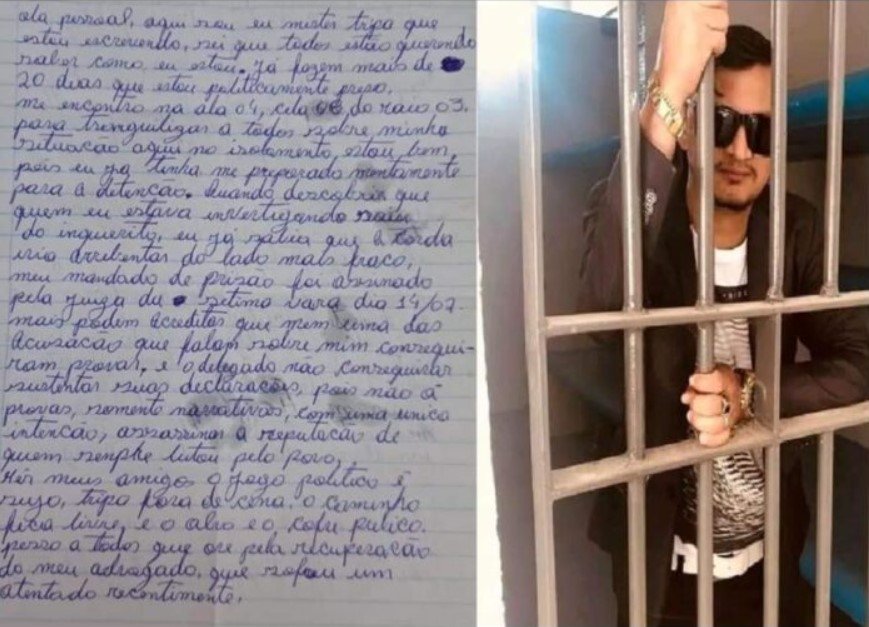 ola pessoal, aqui sou eu mister tripa que
estou escrevendo, sei que todos estão querendo
saber como eu estou. Já fazem mais de
20 dias que estou politicamente preso,
me encontro na ala 04, cela do raio 03.
para trenquiligar a todos sobre minha
situação aqui no isolamento, estou bem,
pois eu ja tinha me preparado mentamente
para a detenção. Quando descobrir que
quem eu estava investigando saiu
do inquerito, eu já sabia que a corda
iria arrebentar do lado mais fraco,
meu mandado de prisão foi assinado
pela juiza da setima vara dia 14/07.
mais podem acreditar que nem uma das
acusacão que falam sobre mim consegui-
ram provar, e o delegado não conseguirar
sustentar suas declarações, pois não á
provas, somente narrativas, com uma unica
intenção, assassinar a reputação de
quem senphe lutou pelo povo,
Hér meus amigos o jogo politico é
sujo, tripa fora de cena, o caminho
fica livre, e o alvo e o cofri publico.
pesso a todos que ore pela recuperação
do meu advogado, que sofreu um
atentado recentimente.